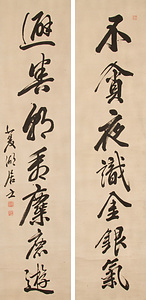 不貪夜識金銀氣
遠害朝看麋鹿遊
夏湖居士